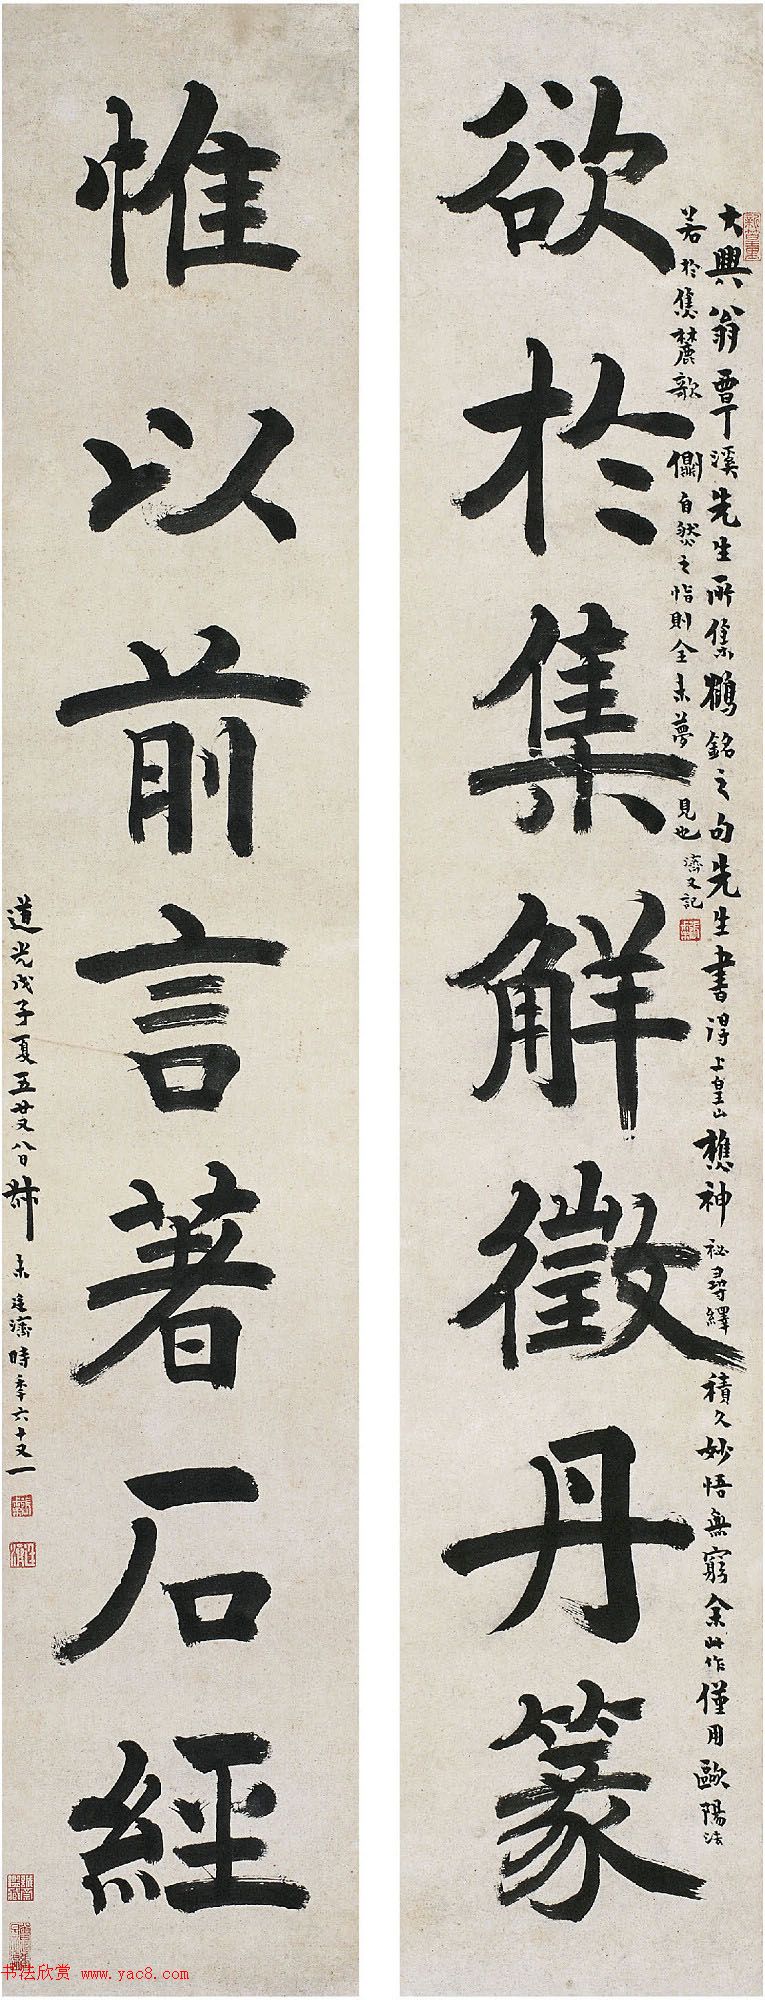 欲於集解徵丹篆
大興翁覃溪先生所集鶴銘之句先生書得上皇山樵神祕尋繹積久妙悟無窮余此作僅用歐陽法
若於集麓歌側自然之恉則全未夢見也濟又記
惟以前言著石經
道光戊子夏五廿又八日叔未廷濟時季六十又一
书法欣赏 www.yac8.com